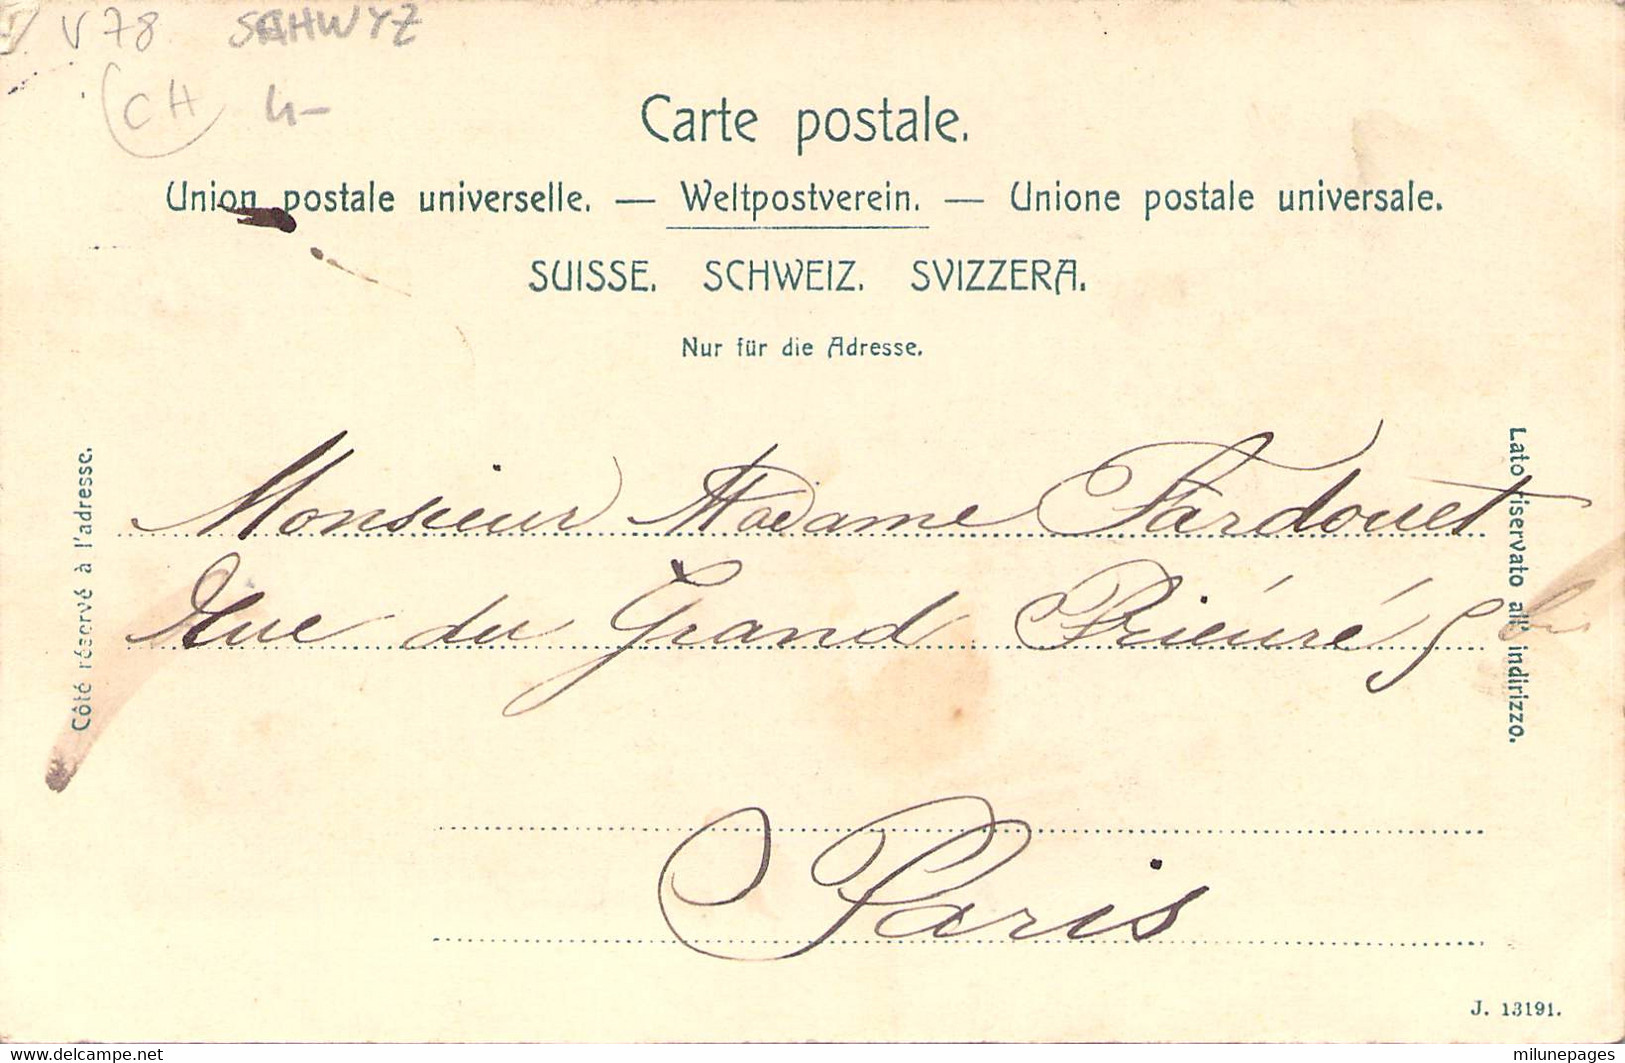 V 78 SCHWYZ
CH 4-
Carte postale.
Union postale universelle. — Weltpostverein. — Unione postale universale.
SUISSE. SCHWEIZ. SVIZZERA.
Nur für die Adresse.
Côté réservé à l'adresse.
Lato riservato all' indirizzo.
Monsieur Madame Fardouet
Rue du Grand Prieuré 5 bis
Paris
J. 13191.
www.delcampe.net
milunepages